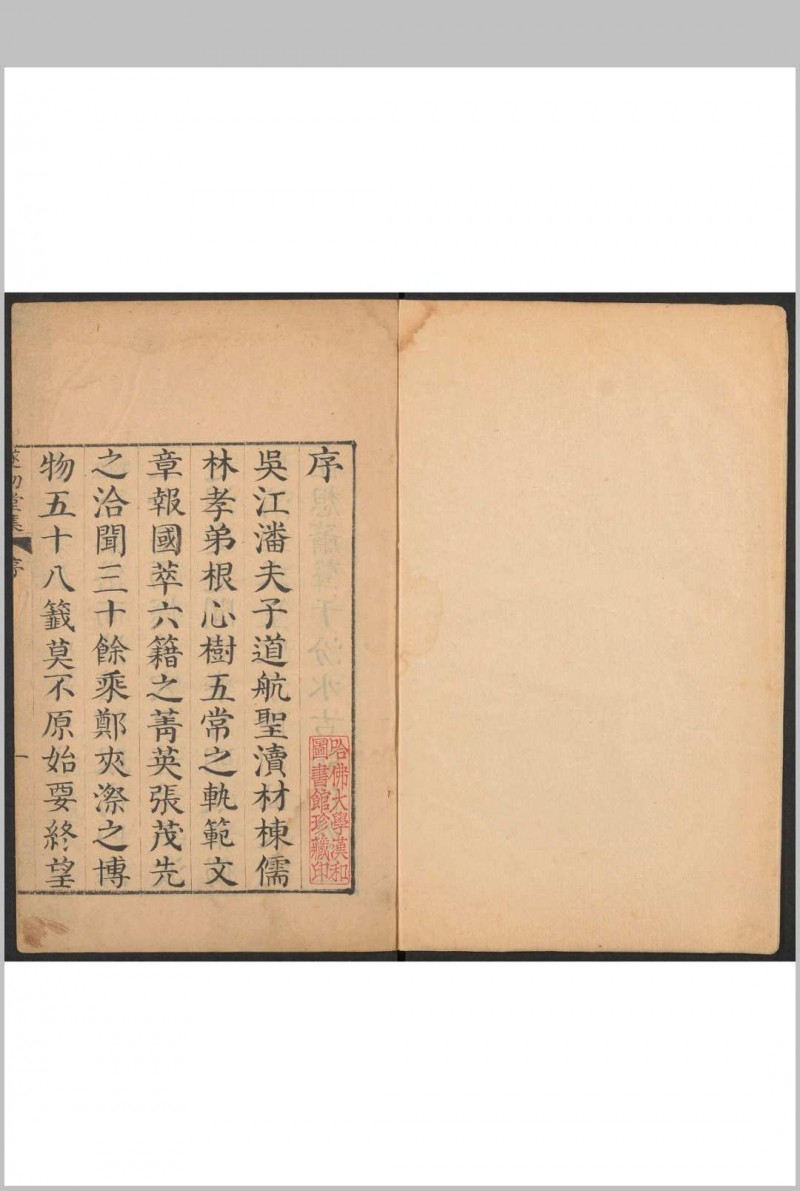 序
哈佛大學漢和
圖書館珍藏印
吳江潘夫子道航聖瀆材棟儒
林孝弟根心樹五常之軌範文
章報國萃六籍之菁英張茂先
之洽聞三十餘乘鄭夾漈之博
物五十八籤莫不原始要終望
遂初堂集
序
一